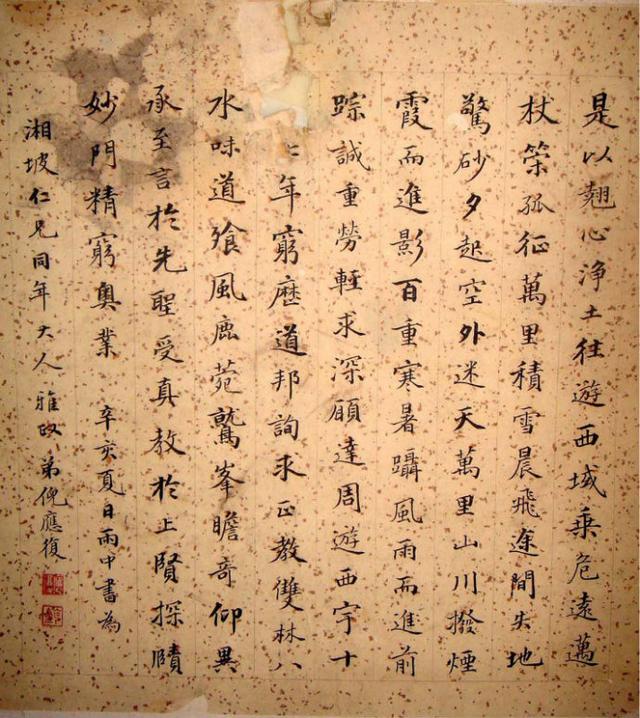 是以翹心浄土往遊西域乘危遠邁
杖策孤征萬里積雪晨飛途間失地
驚砂夕起空外迷天萬里山川撥煙
霞而進影百重寒暑躡風雨而進前
踪誠重勞輕求深願達周遊西宇十
七年窮歷道邦詢求正教雙林八
水味道飡風鹿菀鷲峯瞻奇仰異
承至言於先聖受真教於上賢探賾
妙門精窮奧業 辛亥夏日雨中書為
湘坡仁兄同年大人雅政 弟倪應復